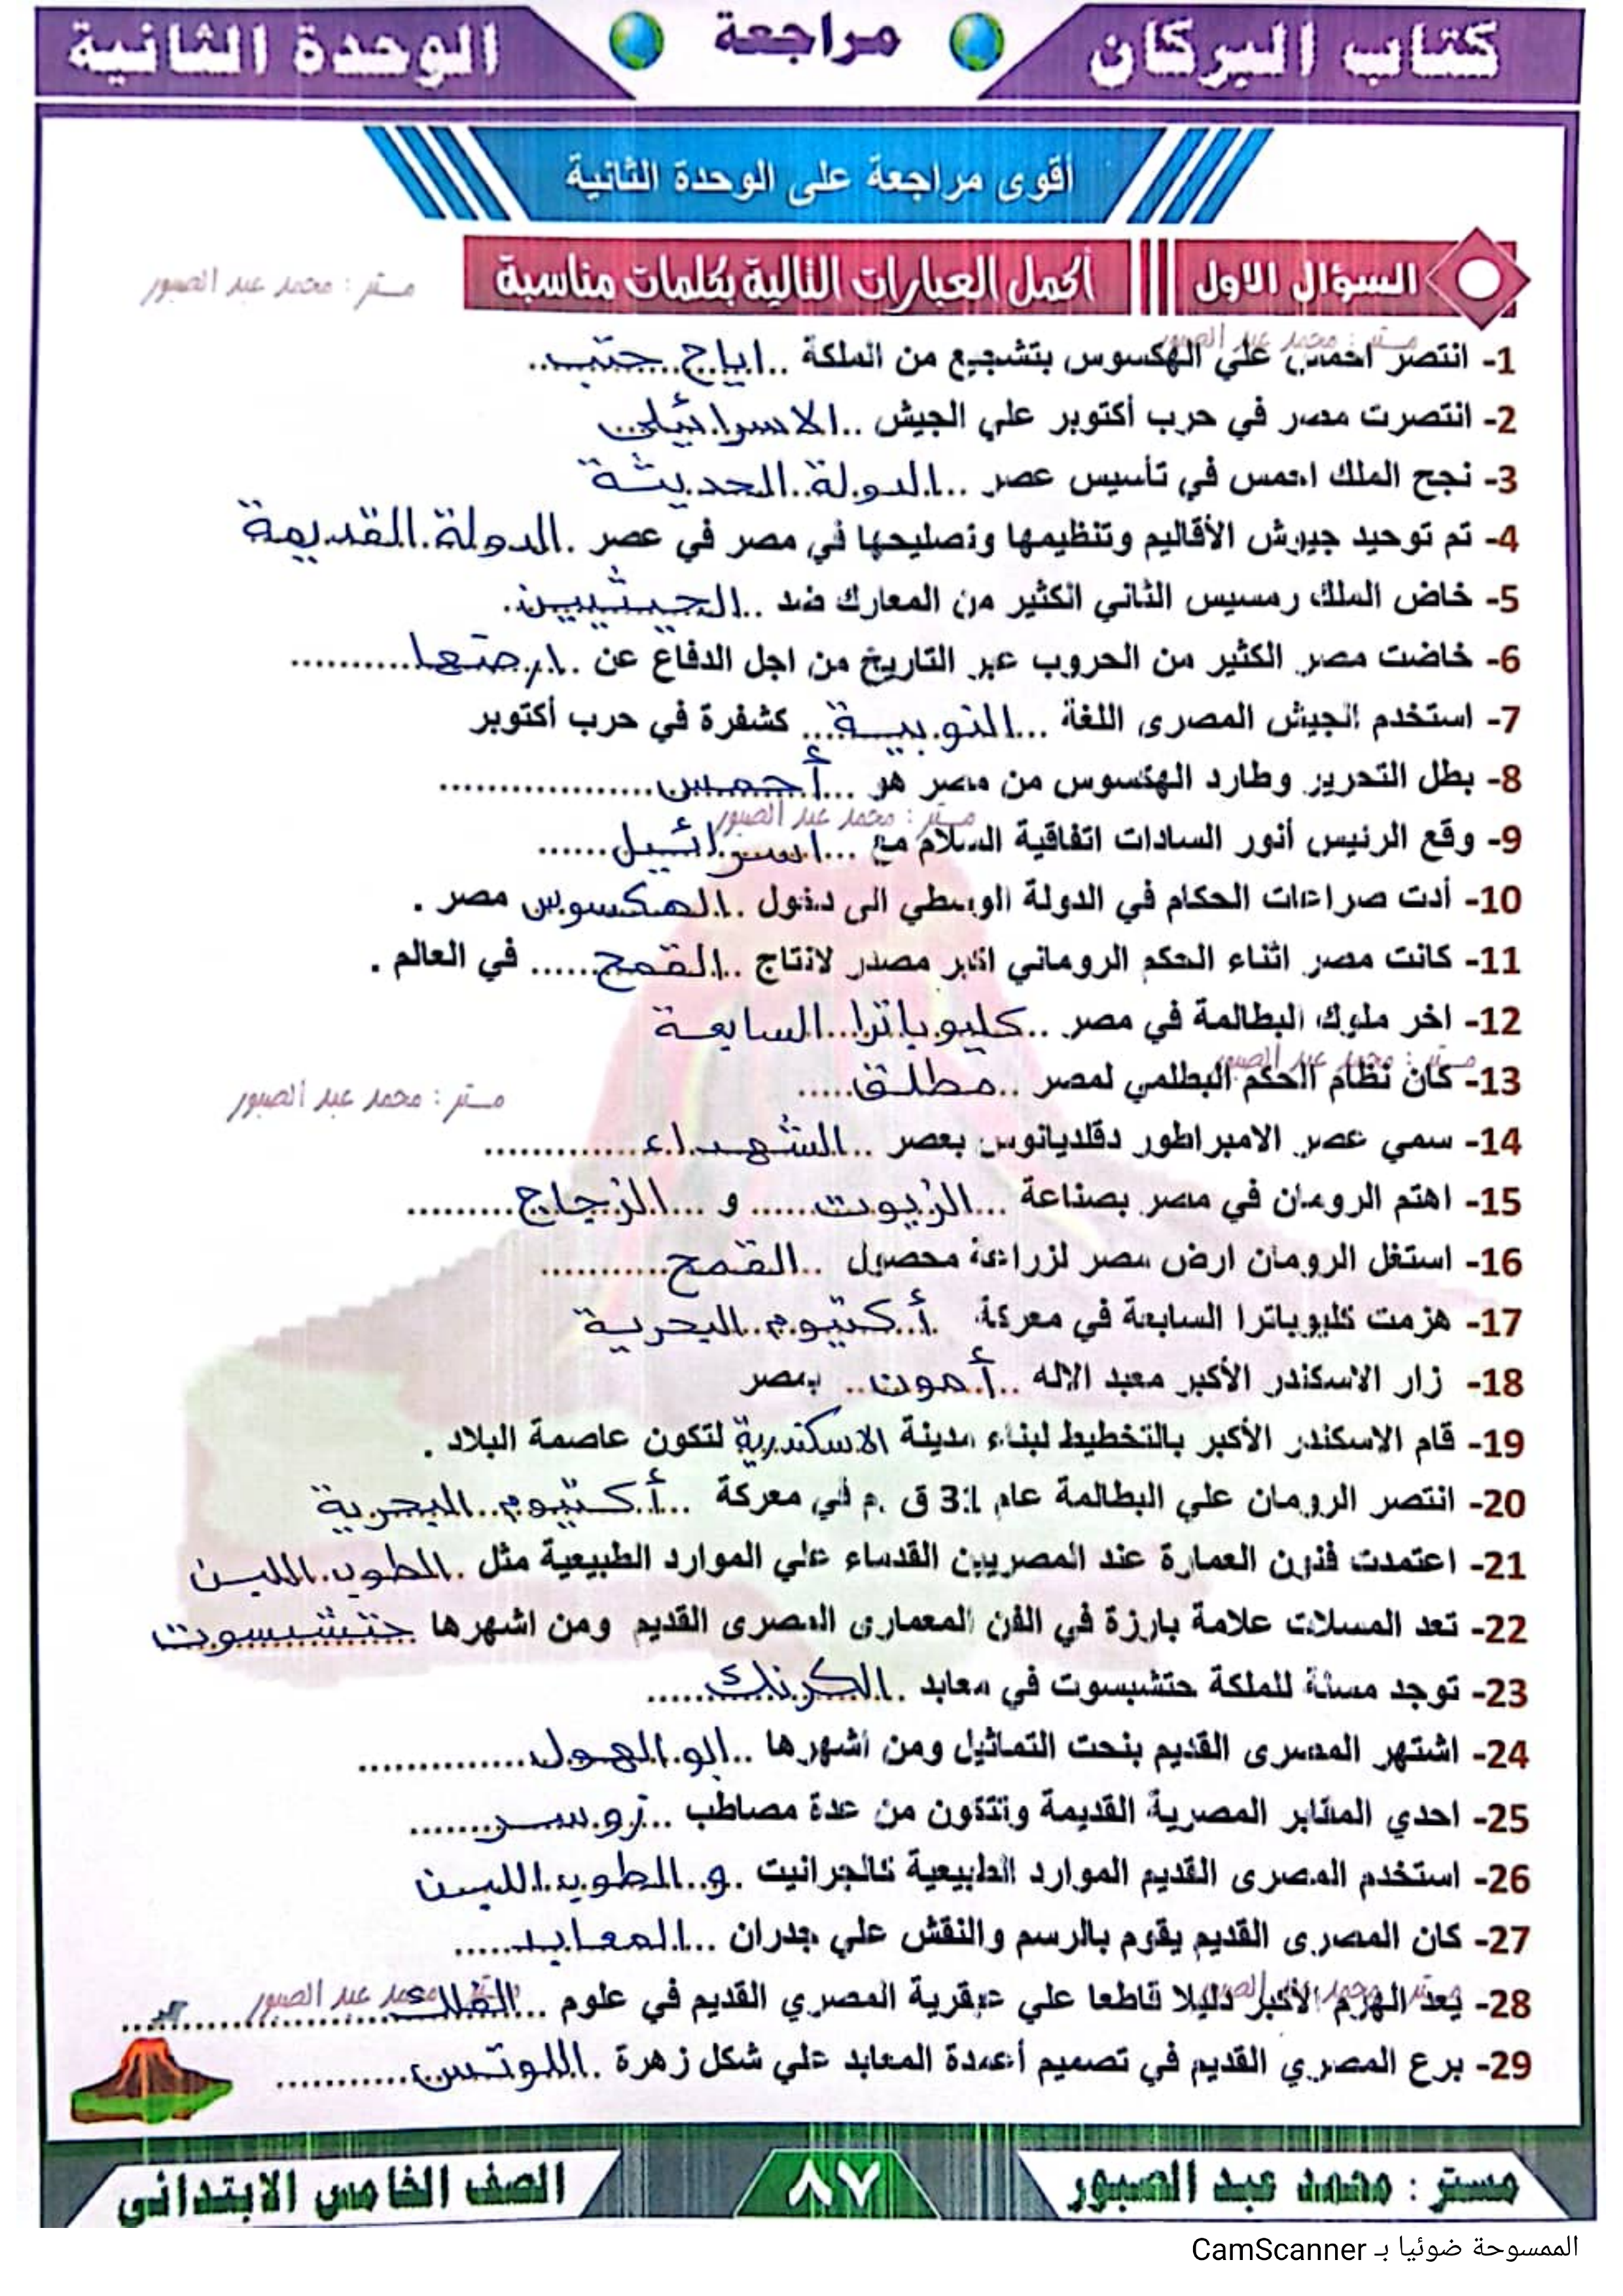 كتاب البركان
مراجعة
الوحدة الثانية
أقوى مراجعة على الوحدة الثانية
السؤال الاول
أكمل العبارات التالية بكلمات مناسبة
مستر : محمد عبد الصبور
مستر : محمد عبد الصبور
1- انتصر احمس علي الهكسوس بتشجيع من الملكة ..اياح حتب..
2- انتصرت مصر في حرب أكتوبر علي الجيش ..الاسرائيلى
3- نجح الملك احمس في تأسيس عصر ..الدولة الحديثة
4- تم توحيد جيوش الأقاليم وتنظيمها وتصليحها في مصر في عصر .الدولة القديمة
5- خاض الملك رمسيس الثاني الكثير من المعارك ضد ..الحيثيين.
6- خاضت مصر الكثير من الحروب عبر التاريخ من اجل الدفاع عن .ارضها..........
7- استخدم الجيش المصرى اللغة ...النوبية... كشفرة في حرب أكتوبر
8- بطل التحرير وطارد الهكسوس من مصر هو ...أحمس..................
مستر : محمد عبد الصبور
9- وقع الرئيس أنور السادات اتفاقية السلام مع ...اسرائيل......
10- أدت صراعات الحكام في الدولة الوسطي الى دخول .الهكسوس مصر .
11- كانت مصر اثناء الحكم الروماني اكبر مصدر لانتاج ..القمح...... في العالم .
12- اخر ملوك البطالمة في مصر ..كليوباترا السابعة
مستر : محمد عبد الصبور
13- كان نظام الحكم البطلمي لمصر ..مطلق.....
مستر : محمد عبد الصبور
14- سمي عصر الامبراطور دقلديانوس بعصر ..الشهداء.............
15- اهتم الرومان في مصر بصناعة ...الزيوت...... و ...الزجاج.........
16- استغل الرومان ارض مصر لزراعة محصول ..القمح...........
17- هزمت كليوباترا السابعة في معركة .أكتيوم البحرية
18- زار الاسكندر الأكبر معبد الاله ..أمون.. بمصر
19- قام الاسكندر الأكبر بالتخطيط لبناء مدينة الاسكندرية لتكون عاصمة البلاد .
20- انتصر الرومان علي البطالمة عام 31 ق .م في معركة ...أكتيوم البحرية
21- اعتمدت فنون العمارة عند المصريين القدماء علي الموارد الطبيعية مثل .الطوب اللبن
22- تعد المسلات علامة بارزة في الفن المعمارى المصرى القديم ومن اشهرها حتشبسوت
23- توجد مسلة للملكة حتشبسوت في معابد .الكرنك......
24- اشتهر المصرى القديم بنحت التماثيل ومن اشهرها ..ابو الهول..............
25- احدي المقابر المصرية القديمة وتتكون من عدة مصاطب ...زوسر.......
26- استخدم المصرى القديم الموارد الطبيعية كالجرانيت .و الطوب اللبن
27- كان المصرى القديم يقوم بالرسم والنقش علي جدران ...المعابد......
مستر : محمد عبد الصبور
مستر : محمد عبد الصبور
28- يعد الهرم الأكبر دليلا قاطعا علي عبقرية المصري القديم في علوم ...الفلك......................
29- برع المصري القديم في تصميم أعمدة المعابد علي شكل زهرة .اللوتس............
مستر : محمد عبد الصبور
٨٧
الصف الخامس الابتدائي
الممسوحة ضوئيا بـ CamScanner